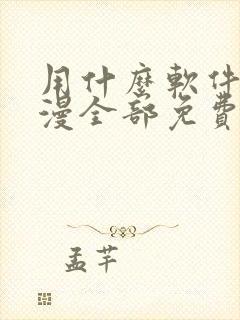 用什麼軟件
漫全部免費
孟芊